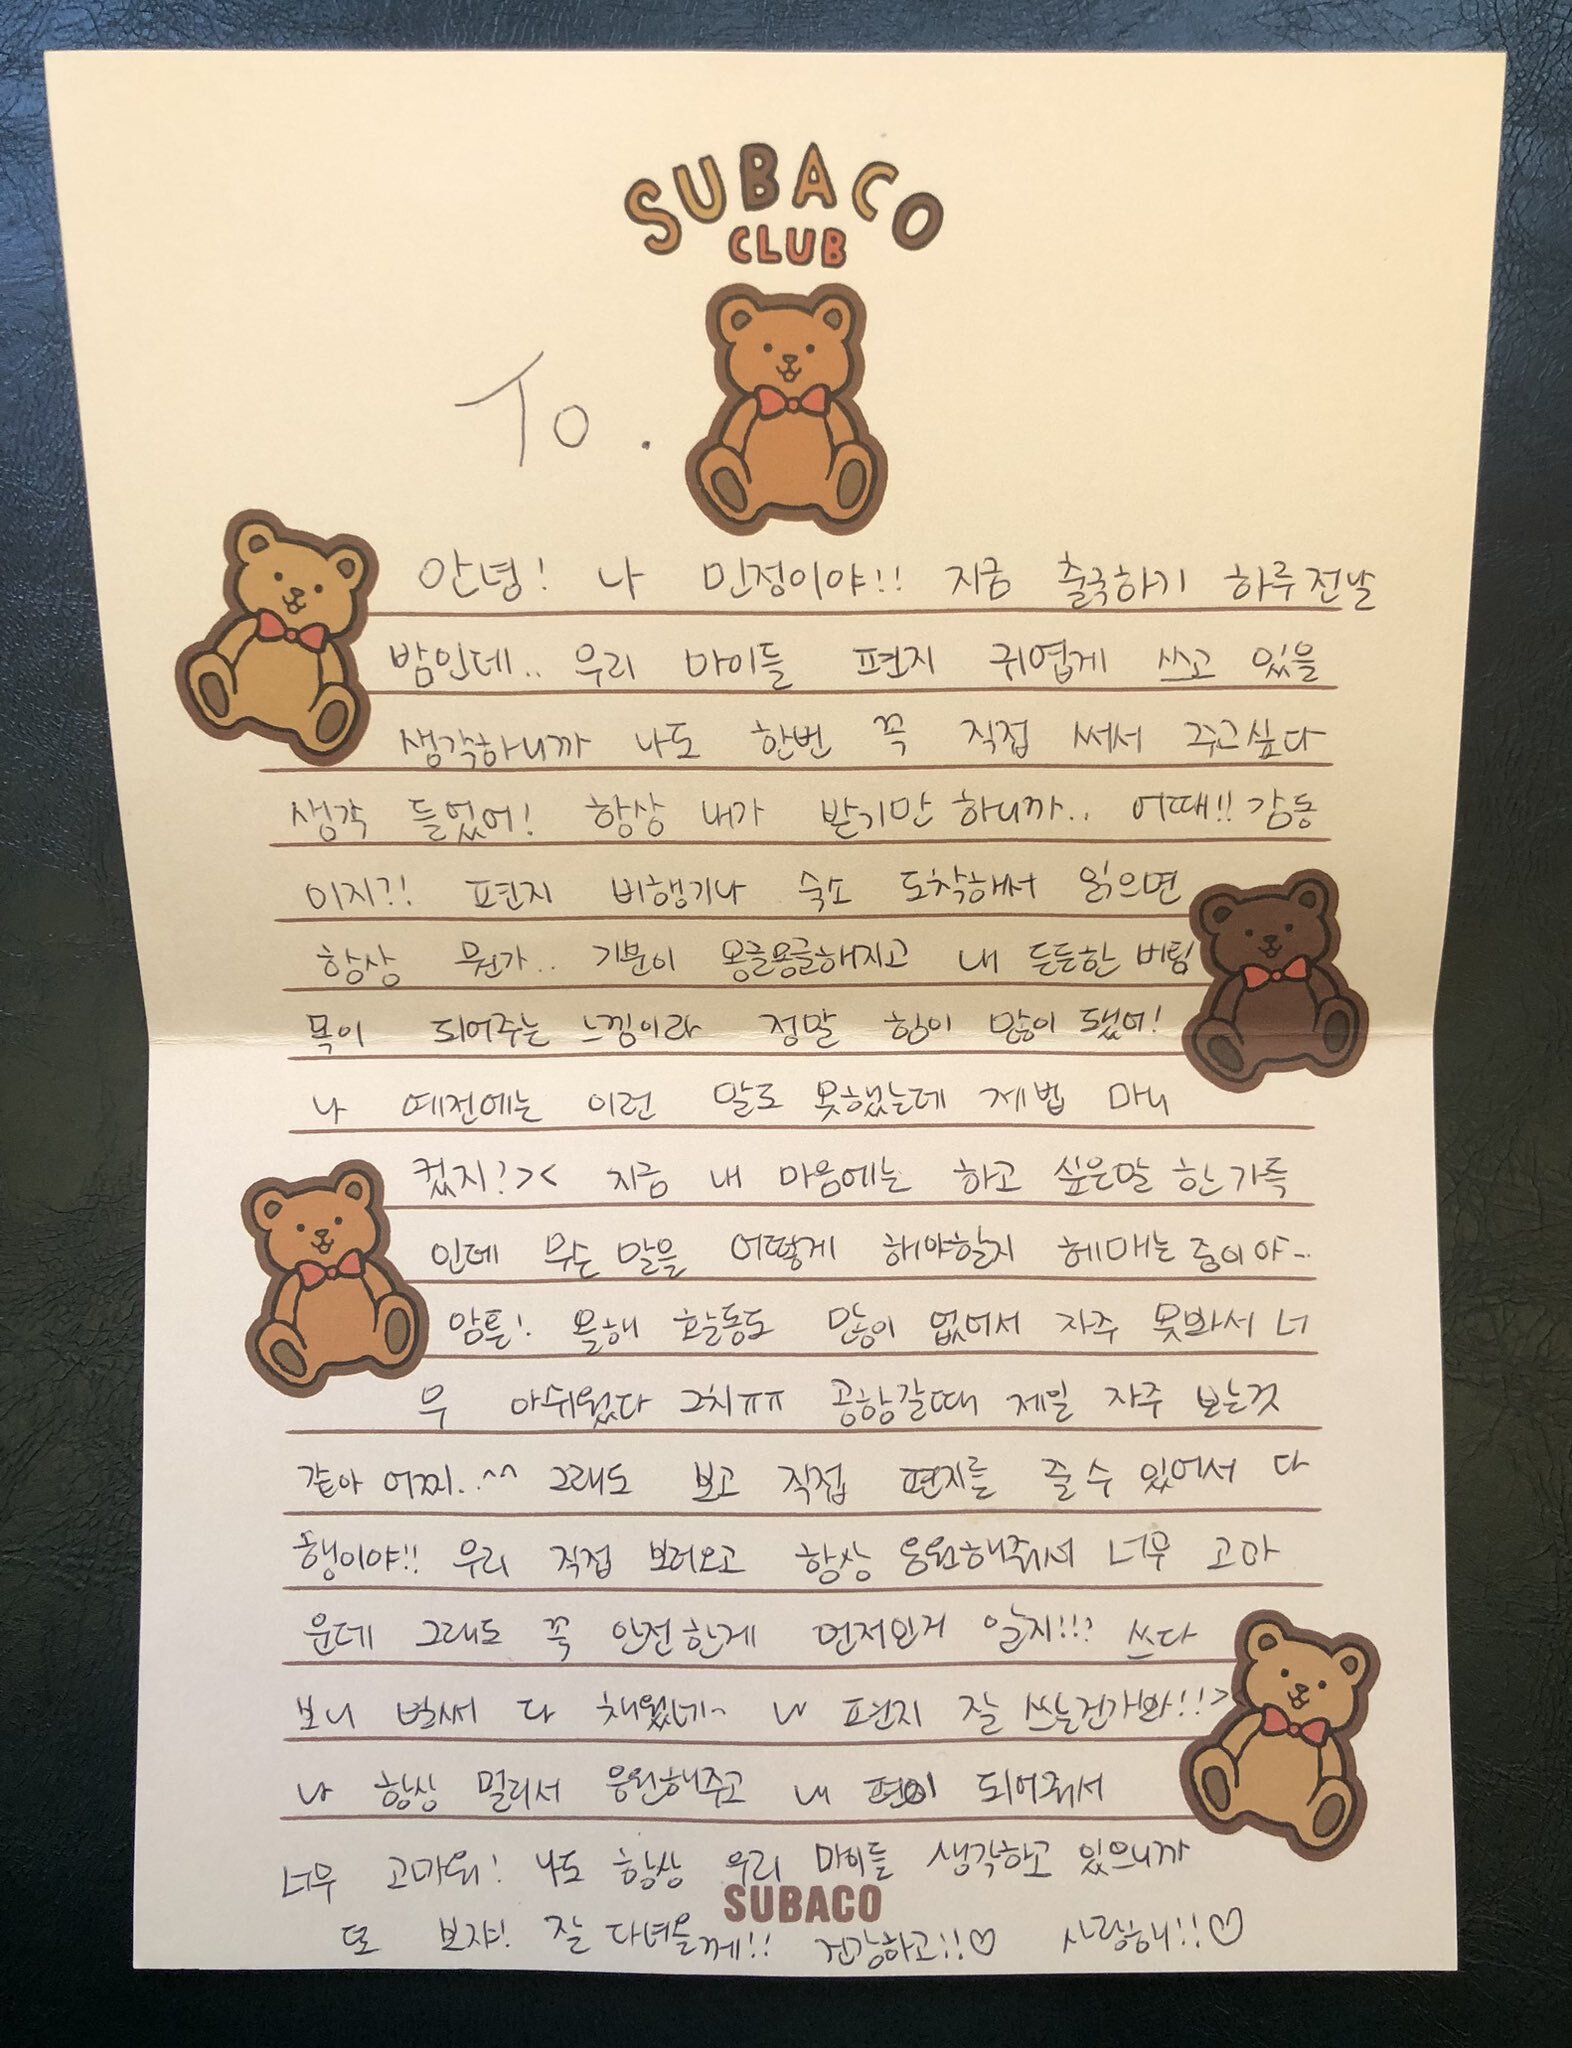 SUBACO
CLUB
To.
안녕! 나 민정이야!! 지금 출국하기 하루 전날
밤인데.. 우리 마이들 편지 귀엽게 쓰고 있을
생각하니까 나도 한번 꼭 직접 써서 주고싶다
생각 들었어! 항상 내가 받기만 하니까.. 어때!! 감동
이지?! 편지 비행기나 숙소 도착해서 읽으면
항상 뭔가.. 기분이 몽글몽글해지고 내 든든한 버팀
목이 되어주는 느낌이라 정말 힘이 많이 됐어!
나 예전에는 이런 말도 못했는데 제법 마니
컸지?>< 지금 내 마음에는 하고 싶은말 한가득
인데 무슨 말을 어떻게 해야할지 헤매는 중이야~
암튼! 올해 활동도 많이 없어서 자주 못봐서 너
무 아쉬웠다 그치ㅠㅠ 공항갈때 제일 자주 보는것
같아 어찌..^^ 그래도 보고 직접 편지를 줄 수 있어서 다
행이야!! 우리 직접 보러오고 항상 응원해줘서 너무 고마
운데 그래도 꼭 안전한게 먼저인거 알지!!? 쓰다
보니 벌써 다 채웠네~ 나 편지 잘 쓰는건가봐!!>
나 항상 멀리서 응원해주고 내 편이 되어줘서
너무 고마워! 나도 항상 우리 마이들 생각하고 있으니까
SUBACO
또 보쟈! 잘 다녀올께!! 건강하고!!♡ 사랑해!!♡